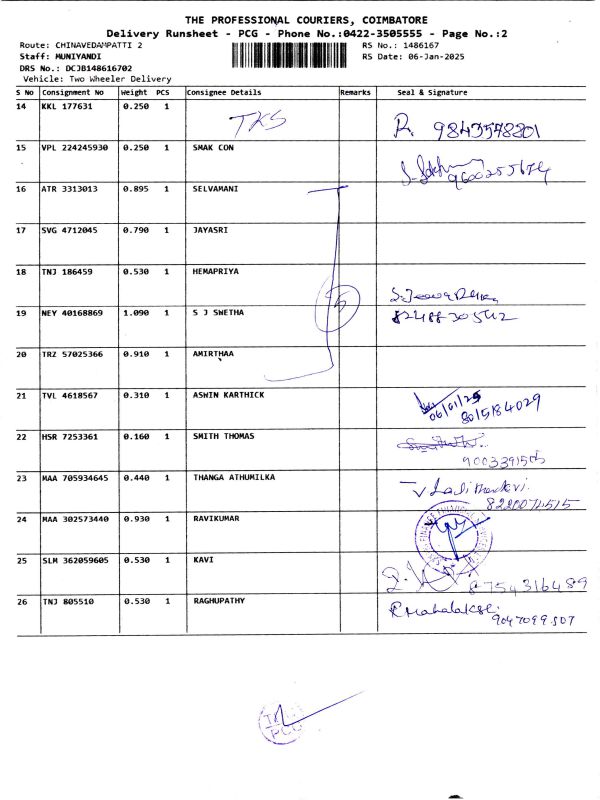 THE PROFESSIONAL COURIERS, COIMBATORE
Delivery Runsheet - PCG - Phone No.:0422-3505555 - Page No.:2
Route: CHINAVEDAMPATTI 2 RS No.: 1486167
Staff: MUNIYANDI RS Date: 06-Jan-2025
DRS No.: DCJB148616702
Vehicle: Two Wheeler Delivery
S No Consignment No Weight PCS Consignee Details Remarks Seal & Signature
14 KKL 177631 0.250 1 TKS R. 9843548201
15 VPL 224245930 0.250 1 SMAK CON
16 ATR 3313013 0.895 1 SELVAMANI
17 SVG 4712045 0.790 1 JAYASRI
18 TNJ 186459 0.530 1 HEMAPRIYA
19 NEY 40168869 1.090 1 S J SWETHA 5 8248830542
20 TRZ 57025366 0.910 1 AMIRTHAA
21 TVL 4618567 0.310 1 ASHIN KARTHICK 06/01/25 8015184029
22 HSR 7253361 0.160 1 SMITH THOMAS
9003391505
23 MAA 705934645 0.440 1 THANGA ATHUMILKA
24 MAA 302573440 0.930 1 RAVIKUMAR
25 SLM 362059605 0.530 1 KAVI
8754316489
26 TNJ 805510 0.530 1 RAGHUPATHY
9047099507
PCG